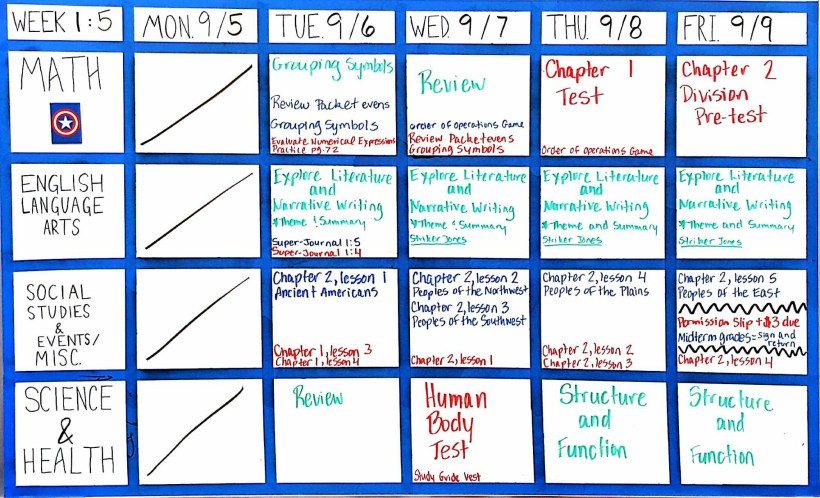 WEEK 1:5
MON. 9/5
TUE. 9/6
WED. 9/7
THU. 9/8
FRI. 9/9
MATH
Grouping Symbols
Review Packet evens
Grouping Symbols
Evaluate Numerical Expressions
Practice pg. 72
Review
order of operations Game
Review Packet evens
Grouping Symbols
Chapter 1
Test
Order of operations Game
Chapter 2
Division
Pre-test
ENGLISH
LANGUAGE
ARTS
Explore Literature
and
Narrative Writing
*Theme & Summary
Super-Journal 1:5
Super-Journal 1:4
Explore Literature
and
Narrative Writing
*Theme & Summary
Striker Jones
Explore Literature
and
Narrative Writing
*Theme and Summary
Striker Jones
Explore Literature
and
Narrative Writing
*Theme and Summary
Striker Jones
SOCIAL
STUDIES
&
EVENTS/
MISC.
Chapter 2, lesson 1
Ancient Americans
Chapter 1, lesson 3
Chapter 1, lesson 4
Chapter 2, lesson 2
Peoples of the Northwest
Chapter 2, lesson 3
Peoples of the Southwest
Chapter 2, lesson 1
Chapter 2, lesson 4
Peoples of the Plains
Chapter 2, lesson 2
Chapter 2, lesson 3
Chapter 2, lesson 5
Peoples of the East
Permission Slip + $3 due
Midterm grades = sign and
return
Chapter 2, lesson 4
SCIENCE
&
HEALTH
Review
Human
Body
Test
Study Guide
Structure
and
Function
Structure
and
Function